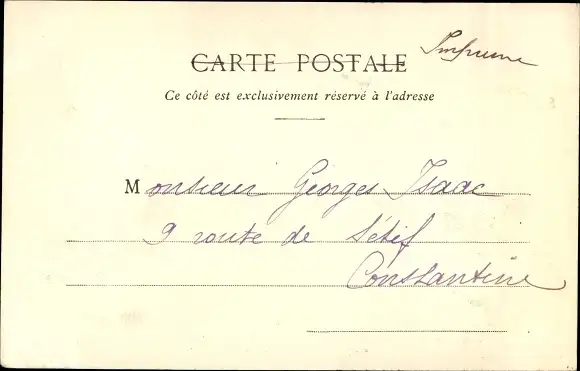 CARTE POSTALE
Imprimé
Ce côté est exclusivement réservé à l'adresse
Monsieur Georges Isaac
9 route de Sétif
Constantine